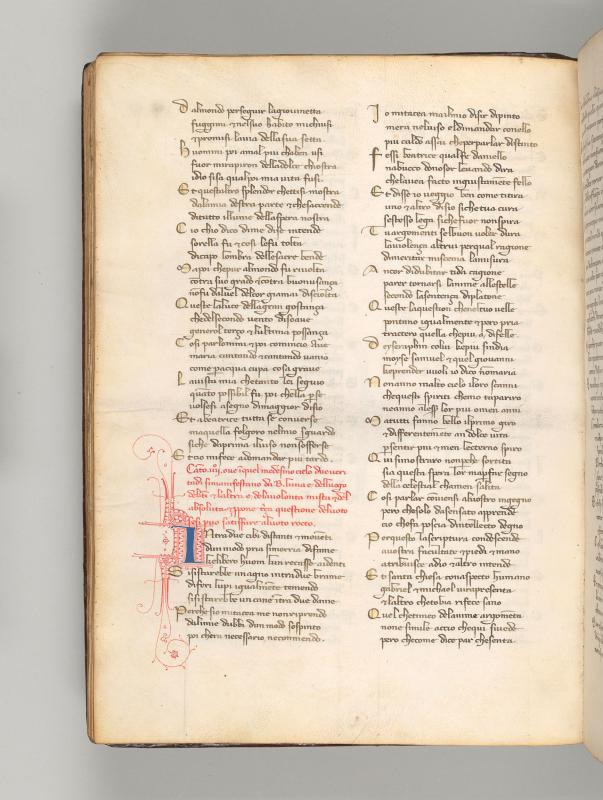 Dalmondo perseguir lagiovinetta
fuggimi et nelsuo habito michiusi
et promisi lavia dellasua setta
Huomini poi amal piu chaben usi
fuor mirapiron delladolce chiostra
idio sisa qualpoi mia vita fusi
Et questaltro splendor chettisi mostra
dalamia destra parte et chesaccende
ditutto illume dellaspera nostra
Cio chio dico dime dise intende
sorella fu et cosi lefu tolta
dicapo lombra dellesacre bende
Ma poi chepur almondo fu rivolta
contra suo grado et contra buonusança
non fu dalvel delcor giamai disciolta
Queste laluce dellagran gostança
chedelsecondo vento disoave
genero l terço et lultima possança
Cosi parlommi et poi comincio Ave
maria cantando et cantando vanio
come pacqua cupa cosa grave
Lavista mia chetanto lei seguio
quanto possibil fu poi chella perse
volsesi asegno dimaggior disio
Et abeatrice tutta si converse
maquella folgoro nelmio sguardo
siche daprima ilviso nonsofferse
Et cio mifece adomandar piu tardo
Intra due cibi distanti et moventi
dun modo pria simorria difame
chelibero huom lun recasse aidenti
Si sistarebbe un agno intra due brame
difieri lupi igualmente temendo
si sistarebbe un cane intra due dame
Perche sio mitacea me non riprendo
dalimie dubbi dun modo sospinto
poi chera necessario necommendo
Io mitacea mailmio disir dipinto
mera nelviso eldimandar conello
piu caldo assai cheperparlar distinto
Fessi beatrice qualfe daniello
nabuccodonosor levando dira
chelavea facto ingiustamente fello
Et disse io veggio ben come titira
uno et altro disio sicche tua cura
sestesso lega sichefuor nonspira
Tu argomenti selbuon voler dura
laviolença altrui perqual ragione
dimeritar miscema lamisura
Ancor didubitar tida cagione
parer tornarsi lanime allestelle
secondo lasentença diplatone
Queste laquestion chenel tuo velle
pontano igualmente et pero pria
tractero quella chepiu a di felle
Deseraphin colui chepiu sindia
moyse samuel et quel giovanni
cheprender vuoli io dico nonmaria
Nonanno inaltro cielo iloro scanni
chequesti spiriti chemo tappariro
neanno alesser lor piu omen anni
Ma tutti fanno bello ilprimo giro
et differentemente an dolce vita
persentir piu et men lecterno spiro
Qui simostraro nonperche sortita
sia questa spera lor mapfar segno
della celestial chamen salita
Cosi parlar convensi alvostro ingegno
pero chesolo dasensato apprende
cio chefa poscia dintellecto degno
Perquesto lascriptura condiscende
avostra facultate et piedi et mano
atribuisce adio et altro intende
Et sancta chiesa conaspecto humano
gabriel et michael virapresenta
et laltro chetobia rifece sano
Quel chetimeo delanime argomenta
none simile accio chequi sivede
pero checome dice par chesenta